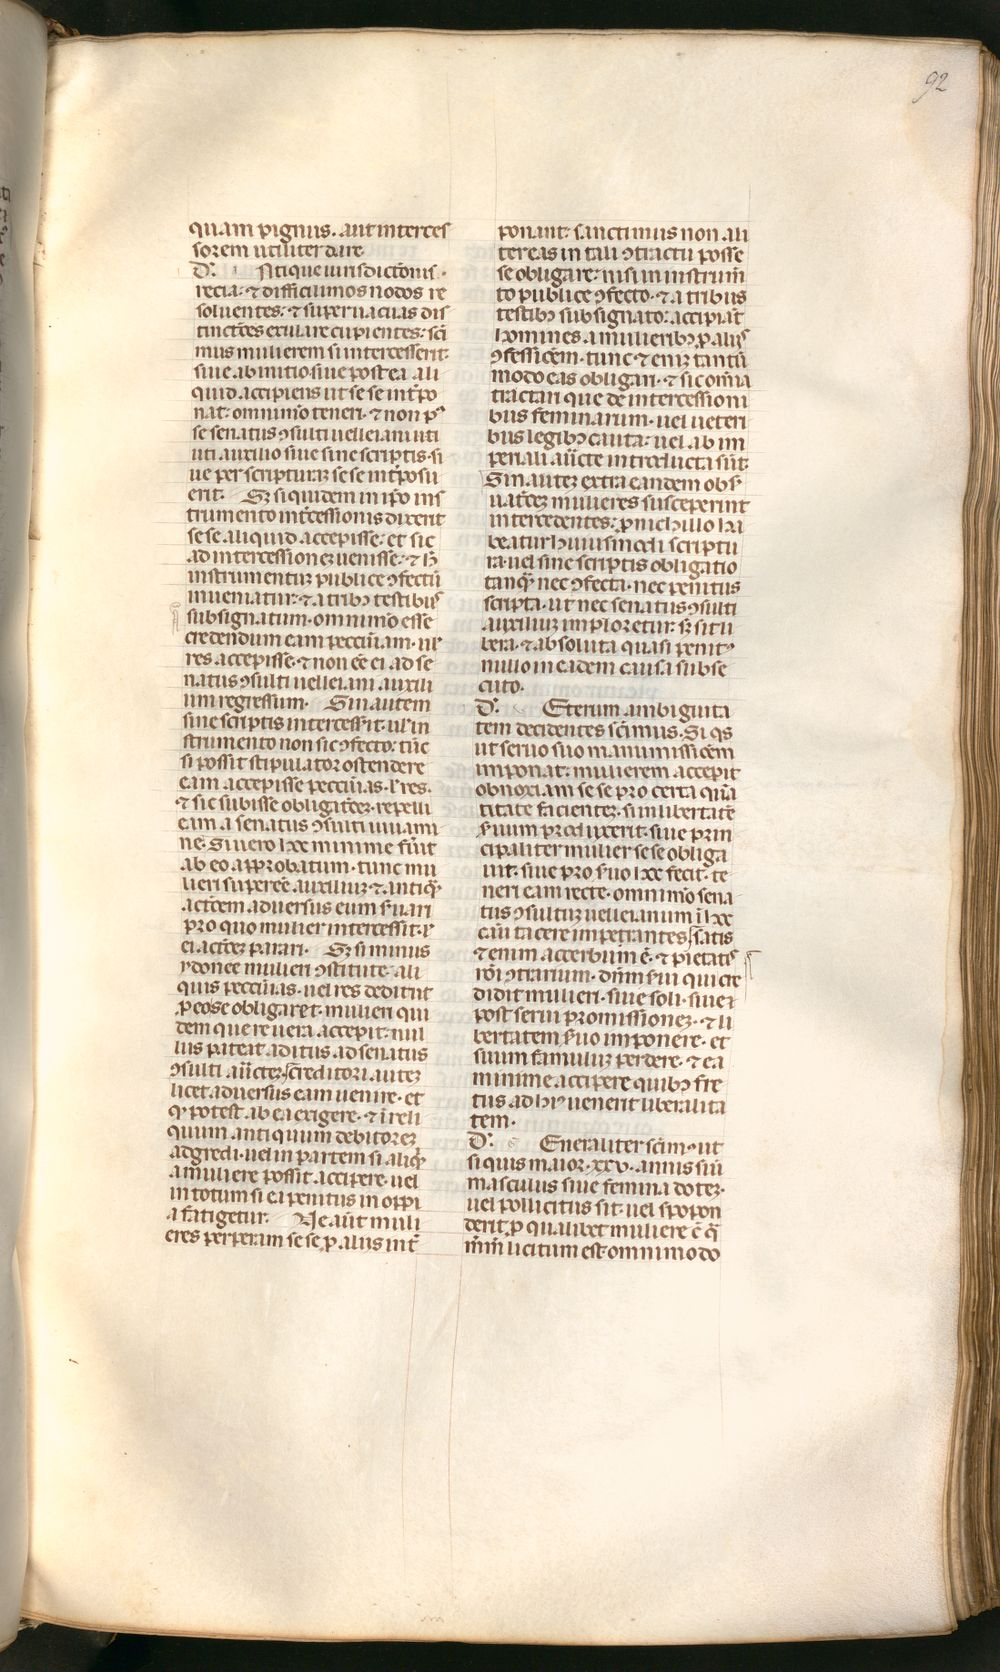 92
quam pignus. aut interces
sorem utiliter dare
D'. Ntique iurisdictōnis.
recia: ⁊ difficilimos nodos re
soluentes: ⁊ superuacuas dis
tinctōes exulare cupientes: sā
mus mulierem si intercesserit:
siue ab initio. siue postea ali
quid accipiens ut se se int̄po
nat: omnimo teneri. ⁊ non p̄
se senatus ꝯsulti uelleiani uti
uti auxilio siue sine scriptis. si
ue per scripturaꝫ se se int̄posu
erit. Sꝫ si quidem in ip̄o ins
trumento int̄cessionis dixerit
se se aliquid accepisse: et sic
ad intercessioneꝫ uenisse: ⁊ h̄
instrumentuꝫ publice ꝯfectū
inueniatur: ⁊ a tribꝫ testibus
subsignatum. omnimo esse
credendum eam peccūiam. ul'
res accepisse. ⁊ non eē ei ad se
natus ꝯsulti uelleiani auxili
um regressum. Sin autem
sine scriptis intercess'it. ul' in
strumento non sic ꝯfecto: tūc
si possit stipulator ostendere
eam accepisse peccūias. l' res.
⁊ sic subisse obligatōeꝫ. repelli
eam a senatus ꝯsulti iuuami
ne. Si uero hoc minime fūit
ab eo approbatum. tunc mu
lieri superēē auxiliuꝫ ⁊ antiqꝫ
actōem aduersus eum s'uari
pro quo mulier intercessit. l'
ei actōeꝫ parari. Sꝫ si minus
ydonee mulieri ꝯstitute. ali
quis peccūias. uel res dederit
ꝑ eo se obligaret. mulieri qui
dem que re uera accepit. nul
lus pateat aditus. ad senatus
ꝯsulti aūcteꝫ. creditori auteꝫ
licet aduersus eam uenire. et
qꝫ potest ab ea exigere. ⁊ ī reli
quum antiquum debitoreꝫ
adgredi. uel in partem si aliqꝫ
a muliere possit accipere. uel
in totum si ea penitus in oppi
a fatigetur. Ne aūt muli
eres perperam se se ꝓ aliis int̄
ponant: sanctimus non ali
ter eas in tali ꝯtractu posse
se obligare: nisi in instrum̄
to publice ꝯfecto. ⁊ a tribus
testibꝫ subsignato: accipiāt
homines a mulieribꝫ ꝓ aliis
ꝯfessiōem. tunc ⁊ eniꝫ tantū
modo eas obligari. ⁊ sic om̄ia
tractari que de intercessioni
bus feminarum. uel ueteri
bus legibꝫ cauta: uel ab im
periali aūcte introducta sūt.
Sin auteꝫ extra eandem obs'
uatōeꝫ mulieres susceperint
intercedentes: ꝓ nichillo ha
beatur huiusmodi scriptu
ra. uel sine scriptis obligatio
tanqꝫ nec ꝯfecta. nec penitus
scripta. ut nec senatus ꝯsulti
auxiliuꝫ imploretur. sꝫ sit li
bera. ⁊ absoluta quasi penitꝰ
nullo in eadem causa subse
cuto.
D'. Eterum ambiguita
tem decidentes sc̄imus. Si qs
ut seruo suo manumissiōem
imponat: mulierem accepit
obnoxiam se se pro certa quā
titate facienteꝫ. si in libertatē
s'uum produxerit. siue prin
cipaliter mulier se se obliga
uit. siue pro s'uo hoc fecit. te
neri eam recte. omnimo sena
tus ꝯsultuꝫ uelleianum ī hoc
cāu tacere impetrantes. satis
⁊ enim acerbum ē. ⁊ pietatis
rōi ꝯtrarium. dn̄m s'ui qui cre
didit mulieri. siue soli. siue
post serui promissioneꝫ. ⁊ li
bertatem s'uo imponere. et
suum famuluꝫ perdere. ⁊ ea
minime accipere quibꝫ fre
tus ad hꝰ uenerit liberalita
tem.
D'. Eneraliter sc̄imꝰ ut
si quis maior. xxv. annis siū
masculus siue femina doteꝫ.
uel pollicitus sit. uel spopon
derit. ꝓ qualibet muliere c̄ q̄
m̄rm̄ licitum est. omnimodo